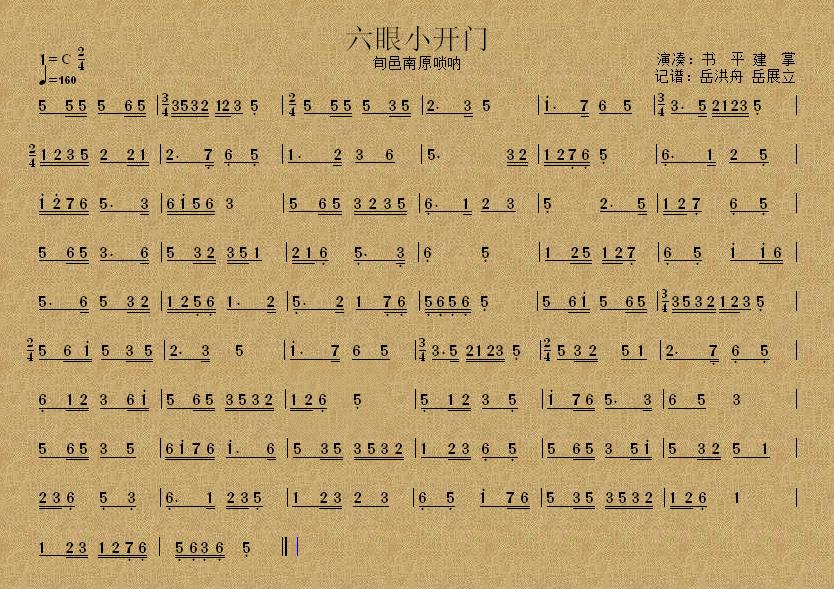 六眼小开门
1=C 2/4
旬邑南原唢呐
演凑：书 平 建 掌
♩=160
记谱：岳洪舟 岳展立
5 55 5 65 | 3/4 3532 123 5̣ | 2/4 5 55 5 35 | 2· 3 5 | i· 7 6 5 | 3/4 3· 5 2123 5̣ |
2/4 1235 2 21 | 2· 7̣ 6̣ 5̣ | 1· 2 3 6 | 5· 32 | 127̣6̣ 5̣ | 6̣· 1 2 5̣ |
i̇2̇76 5· 3 | 6i56 3 | 5 65 3235 | 6̣· 1 2 3 | 5̣ 2· 5 | 127̣ 6̣ 5̣ |
5 65 3· 6 | 5 32 351 | 216̣ 5̣· 3̣ | 6̣ 5̣ | 1 25 127̣ | 6̣ 5̣ i i6 |
5· 6 5 32 | 125̣6̣ 1· 2 | 5̣· 2 1 7̣6̣ | 5̣6̣5̣6̣ 5̣ | 5 6i 5 65 | 3/4 3532 123 5̣ |
2/4 5 6 i 5 35 | 2· 3 5 | i· 7 6 5 | 3/4 3·5 2123 5̣ | 2/4 532 51 | 2· 7̣ 6̣ 5̣ |
6̣ 12 3 6i | 5 65 3532 | 126̣ 5̣ | 5̣ 12 3 5̣ | i 76 5· 3 | 6 5 3 |
5 65 3 5 | 6i76 i· 6 | 5 35 3532 | 1 23 6̣ 5̣ | 5 65 3 5i | 5 32 5 1 |
236̣ 5̣ 3̣ | 6̣· 1 235̣ | 1 23 2 3 | 6̣ 5̣ i 76 | 5 35 3532 | 126̣ 1 |
1 23 127̣6̣ | 5̣6̣3̣6̣ 5̣ ‖